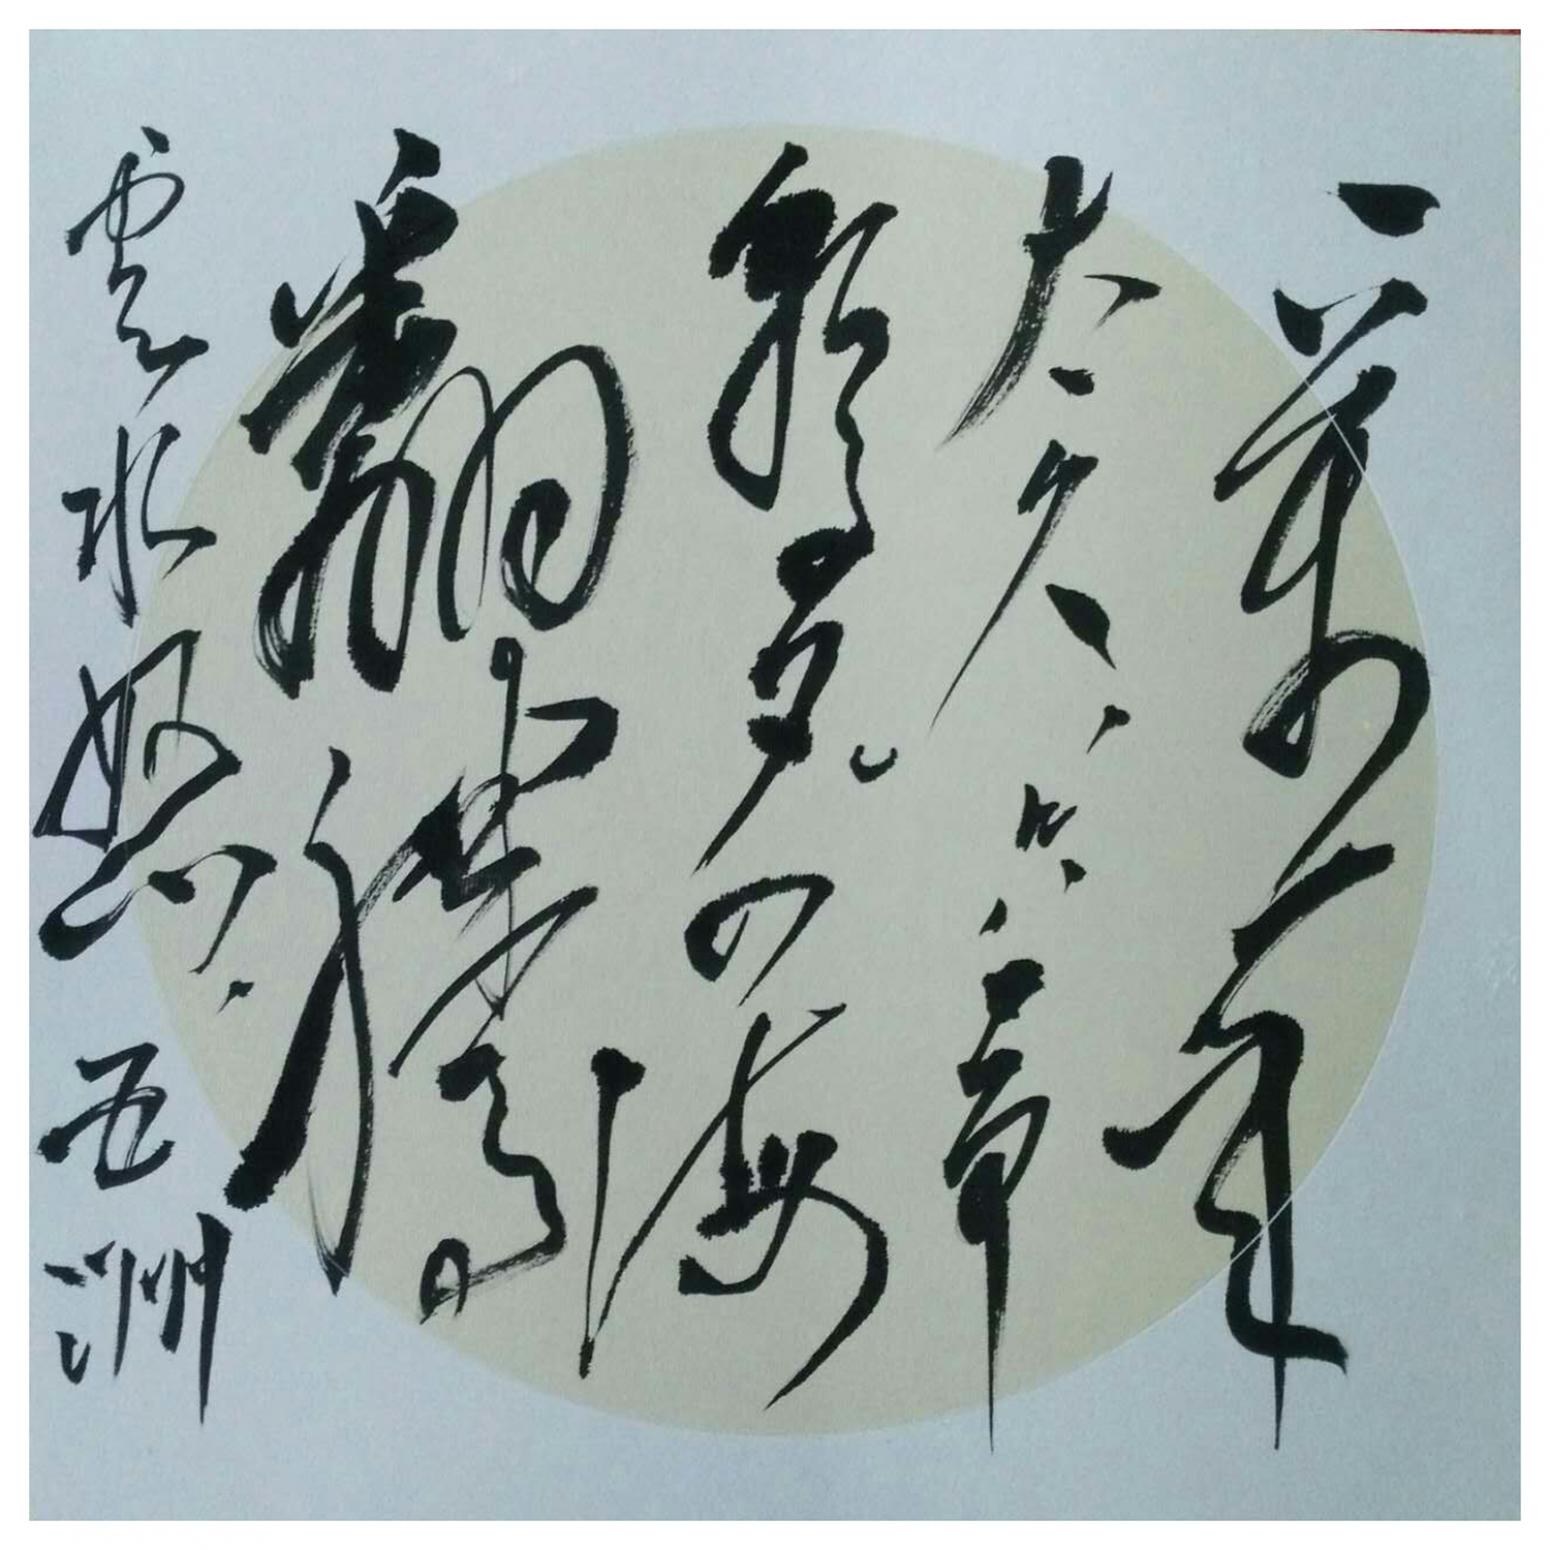 一万年
太久只争
朝夕四海
翻腾云水怒五洲